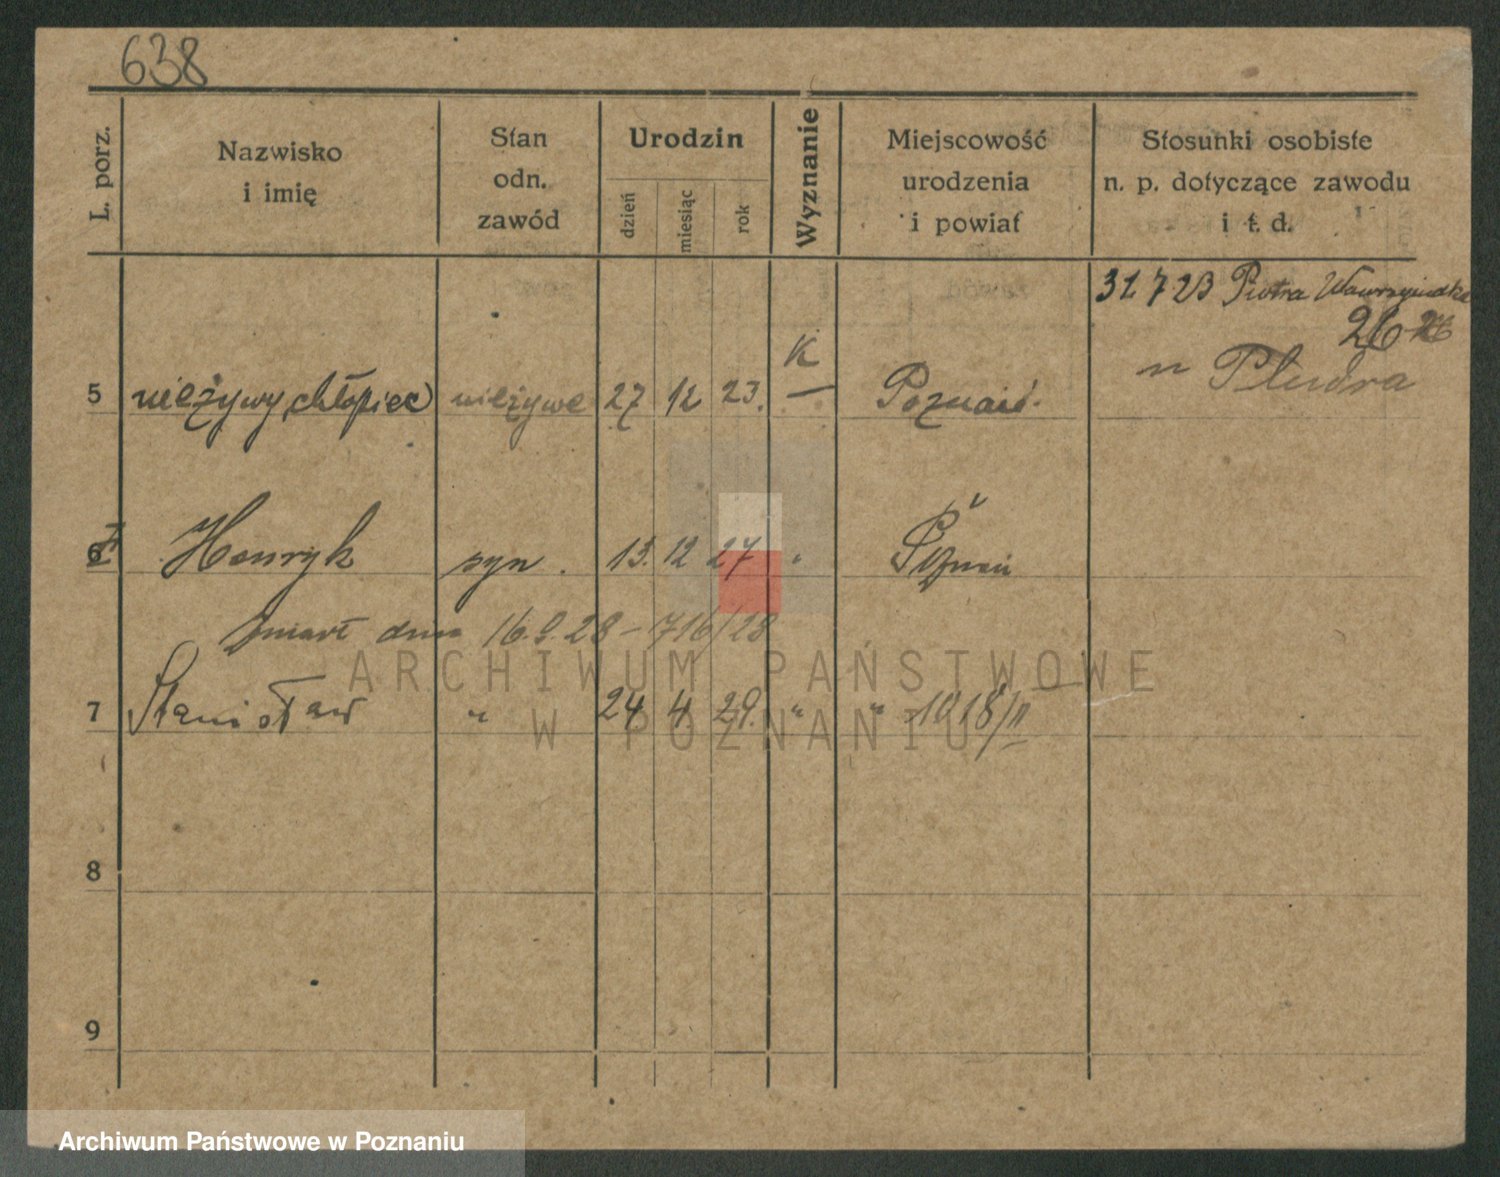 638
L. porz.
Nazwisko
i imię
Stan
odn.
zawód
Urodzin
dzień
miesiąc
rok
Wyznanie
Miejscowość
urodzenia
i powiat
Stosunki osobiste
n. p. dotyczące zawodu
i t. d.
31 7 23 Piotra Wawrzyniaka
26
5 nieżywy chłopiec nieżywe 27 12 23. K — Poznań. n Pludra
6 Henryk syn. 13. 12 27 " Poznań
zmarł dnia 16.9.28 – 716/28
ARCHIWUM PAŃSTWOWE
7 Stanisław " 24 4. 29. " " 1918/II
W POZNANIU
8
9
Archiwum Państwowe w Poznaniu